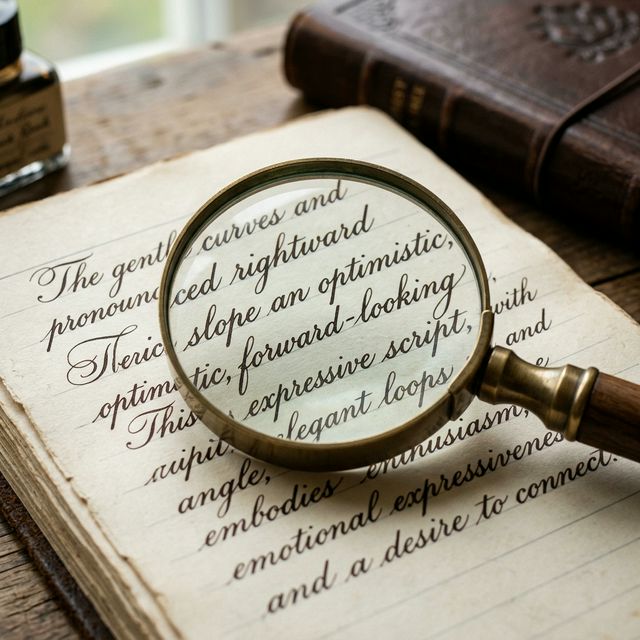 The gentle curves and
pronounced rightward
slope an optimistic,
optimistic, forward-looking
This expressive script, with
elegant loops and
angle,
embodies enthusiasm,
emotional expressiveness
and a desire to connect.